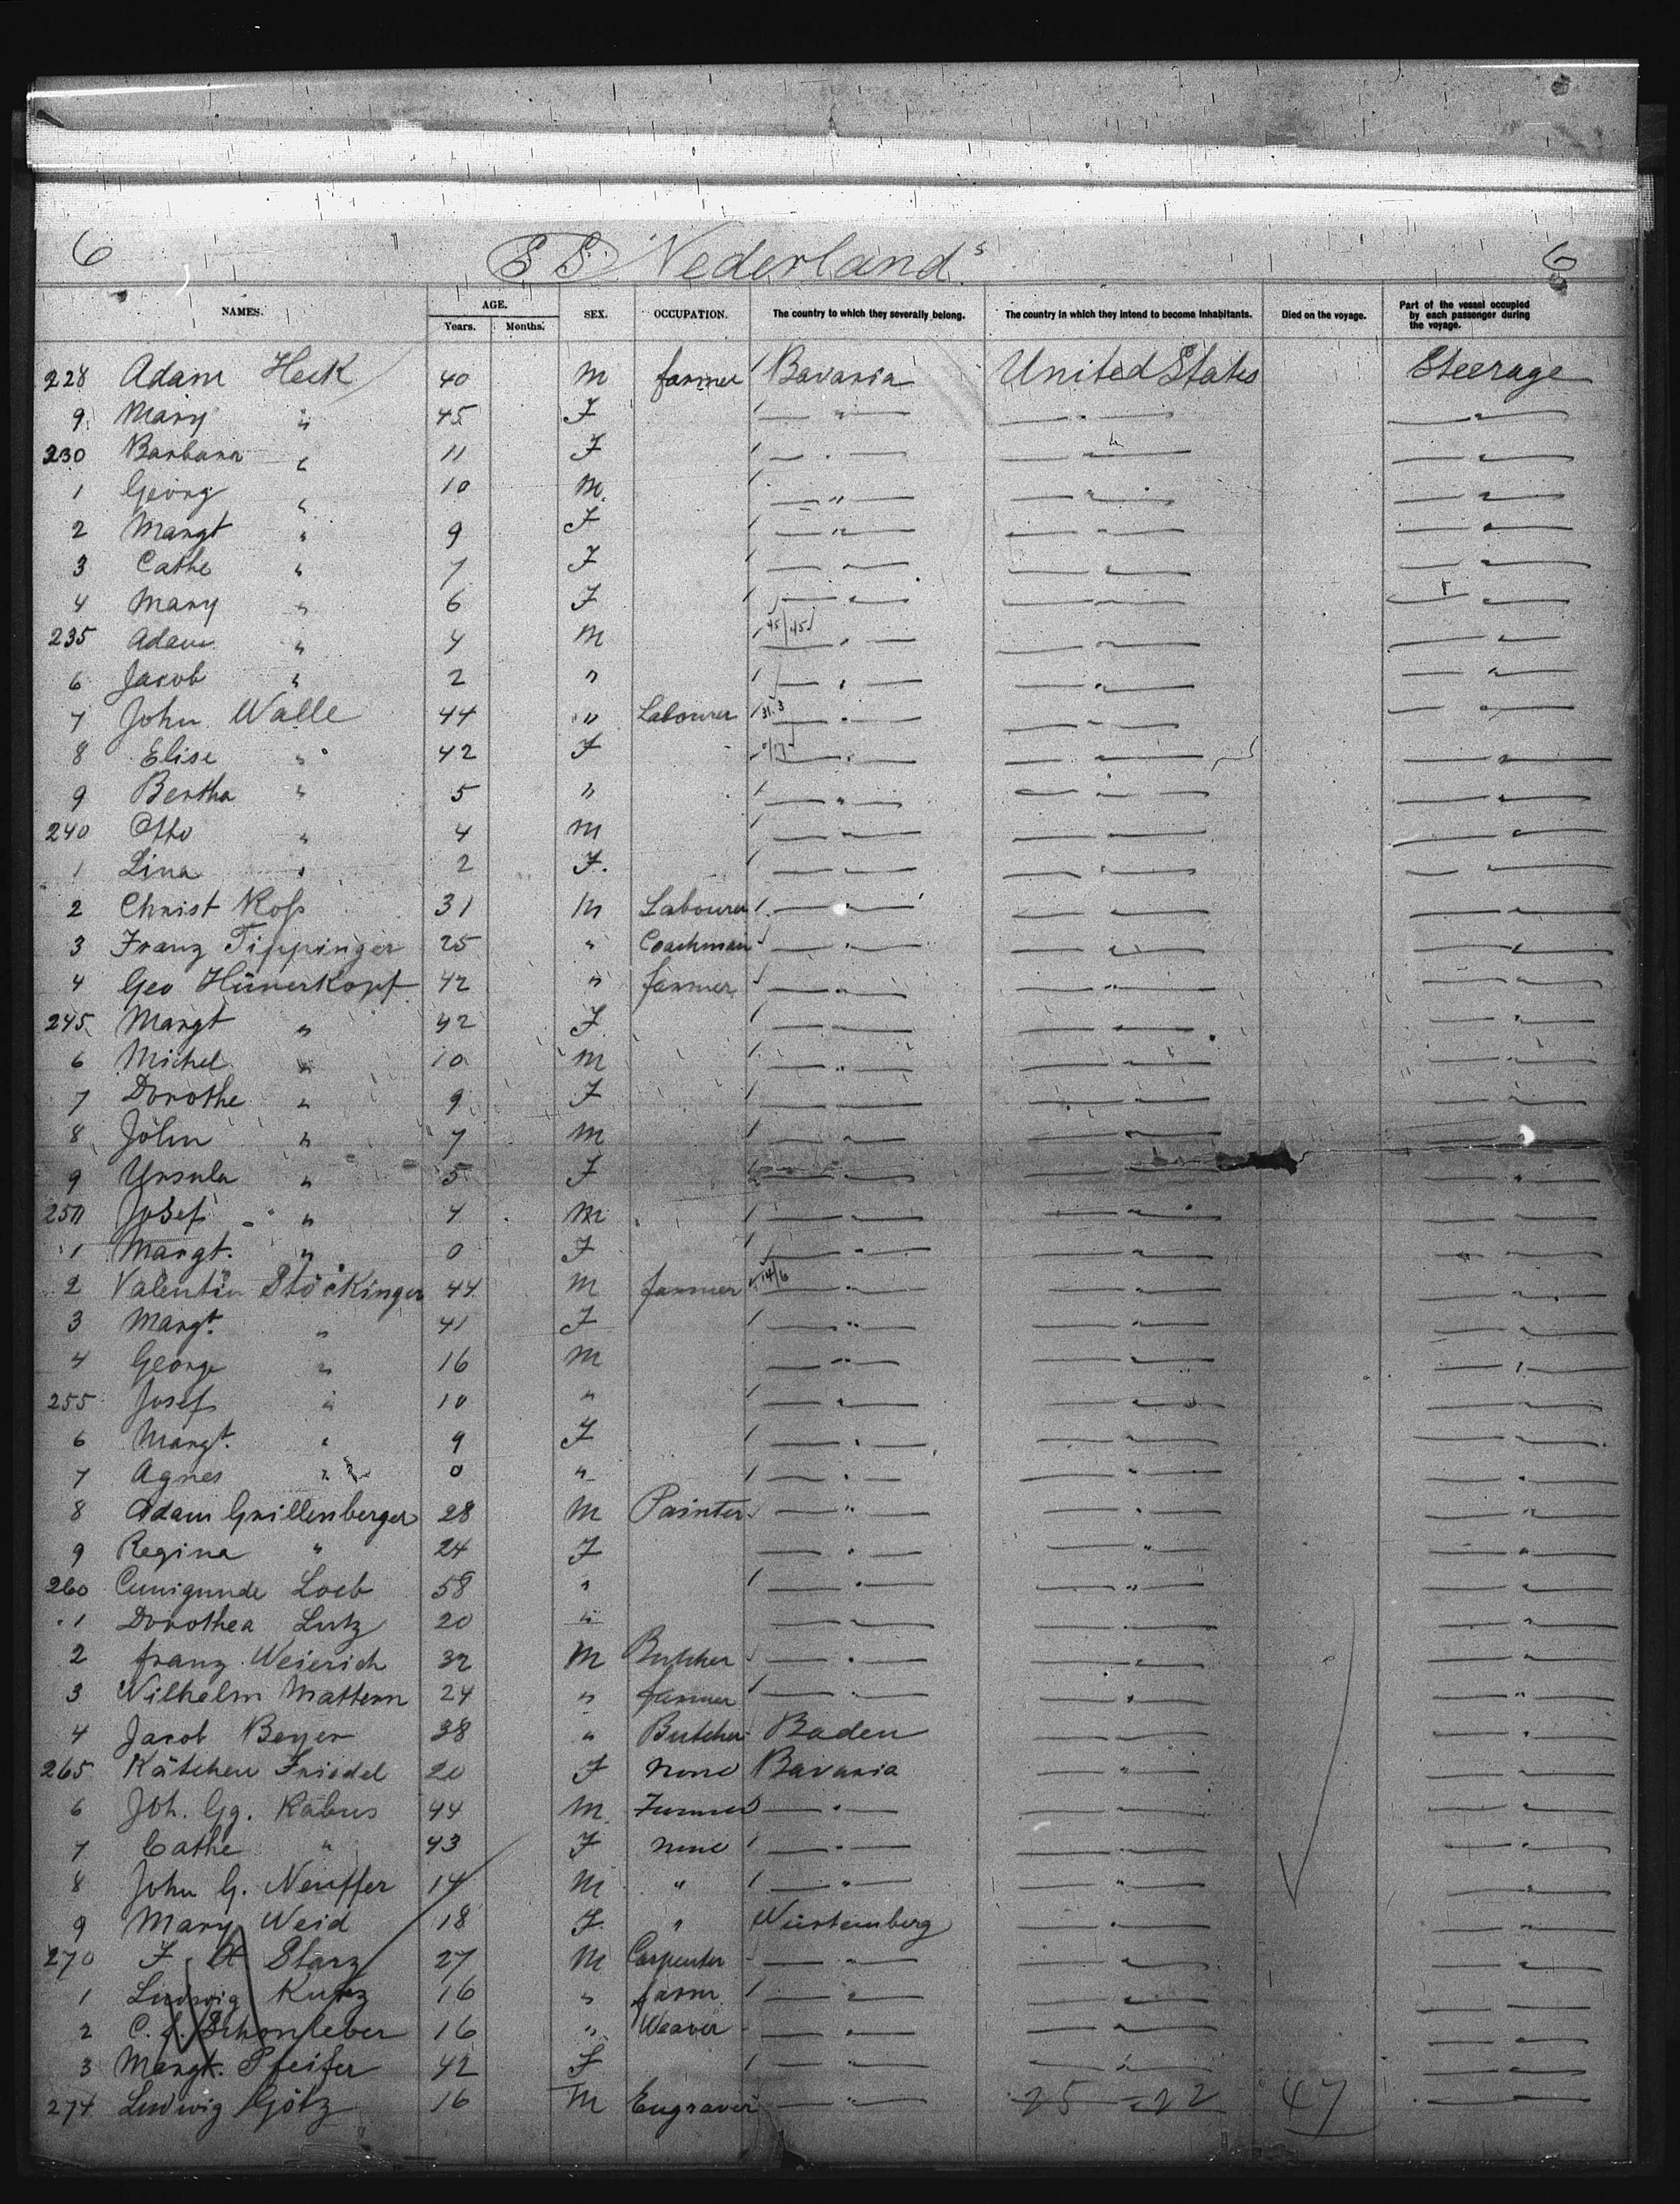 6 SS "Nederland" 6
NAMES. AGE. Years. Months. SEX. OCCUPATION. The country to which they severally belong. The country in which they intend to become inhabitants. Died on the voyage. Part of the vessel occupied by each passenger during the voyage.
228 Adam Heck 40 M farmer Bavaria United States Steerage
9 Mary " 45 F " " "
230 Barbara " 11 F " " "
1 Georg " 10 M " " "
2 Margt " 9 F " " "
3 Cathe " 7 F " " "
4 Mary " 6 F " " "
235 Adam " 4 M " " "
6 Jacob " 2 " " " "
7 John Walle 44 " Labourer " " "
8 Elise " 42 F " " "
9 Bertha " 5 " " " "
240 Otto " 4 M " " "
1 Lina " 2 F. " " "
2 Christ Koss 31 M Labourer " " "
3 Franz Tippinger 25 " Coachman " " "
4 Geo Hünerkopf 42 " farmer " " "
245 Margt " 42 F " " "
6 Michel " 10 M " " "
7 Dorothe " 9 F " " "
8 John " 7 M " " "
9 Ursula " 5 F " " "
250 Josef " 4 M " " "
1 Margt. " 0 F " " "
2 Valentin Stöckinger 44 M farmer 14/6 " " "
3 Margt. " 41 F " " "
4 George " 16 M " " "
255 Josef " 10 " " " "
6 Margt. " 9 F " " "
7 Agnes " 0 " " " "
8 Adam Grillenberger 28 M Painter " " "
9 Regina " 24 F " " "
260 Cunigunde Loeb 58 " " " "
1 Dorothea Lutz 20 " " " "
2 franz Weierich 32 M Butcher " " "
3 Wilhelm Mattern 24 " farmer " " "
4 Jacob Beyer 38 " Butcher Baden " "
265 Kätchen Friedel 20 F none Bavaria " "
6 Joh. Gg. Rabus 44 M Farmer " " "
7 Cathe " 43 F none " " "
8 John G. Neuffer 14 M " " " "
9 Mary Weid 18 F " Würtemberg " "
270 F. A Starz 27 M Carpenter " " "
1 Ludwig Kurz 16 " farm " " "
2 C. f. Schonleber 16 " Weaver " " "
3 Margt. Pfeifer 42 F " " "
274 Ludwig Götz 16 M Engraver " 25 = 22 47 "